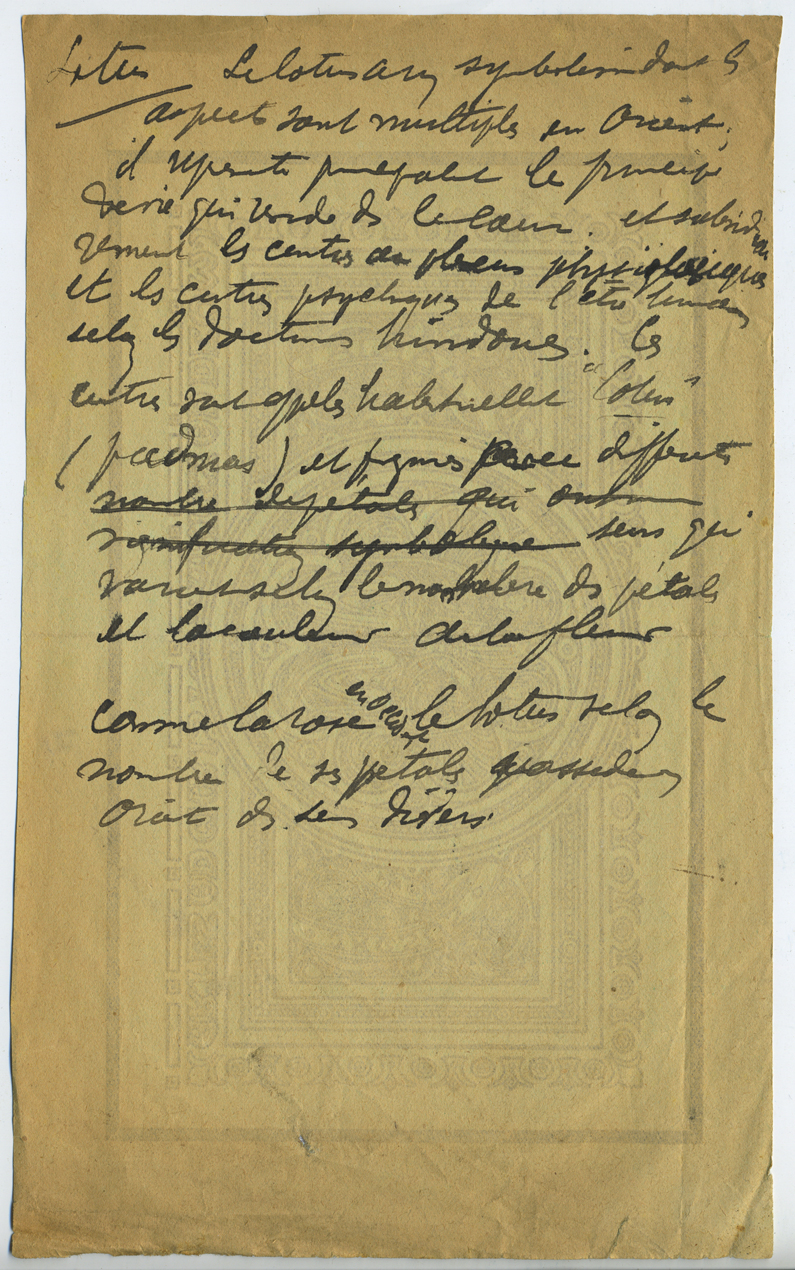 Lotus Le lotus a un symbolisme dont les
aspects sont multiples en Orient ;
il représente principalement le principe
de vie qui réside ds le cœur. et subsidiai
rement les centres des plexus physiologiques
et les centres psychiques de l'être humain
selon les doctrines hindoues. Ces
centres sont appelés habituellemt "lotus"
(padmas) et figurés avec différents
nombre de pétales qui ont une
signification symbolique sens qui
varient selon le nombre ds pétales
et la couleur de la fleur
comme la rose en Occident le lotus selon le
nombre de ses pétales possède en
Orient ds sens divers